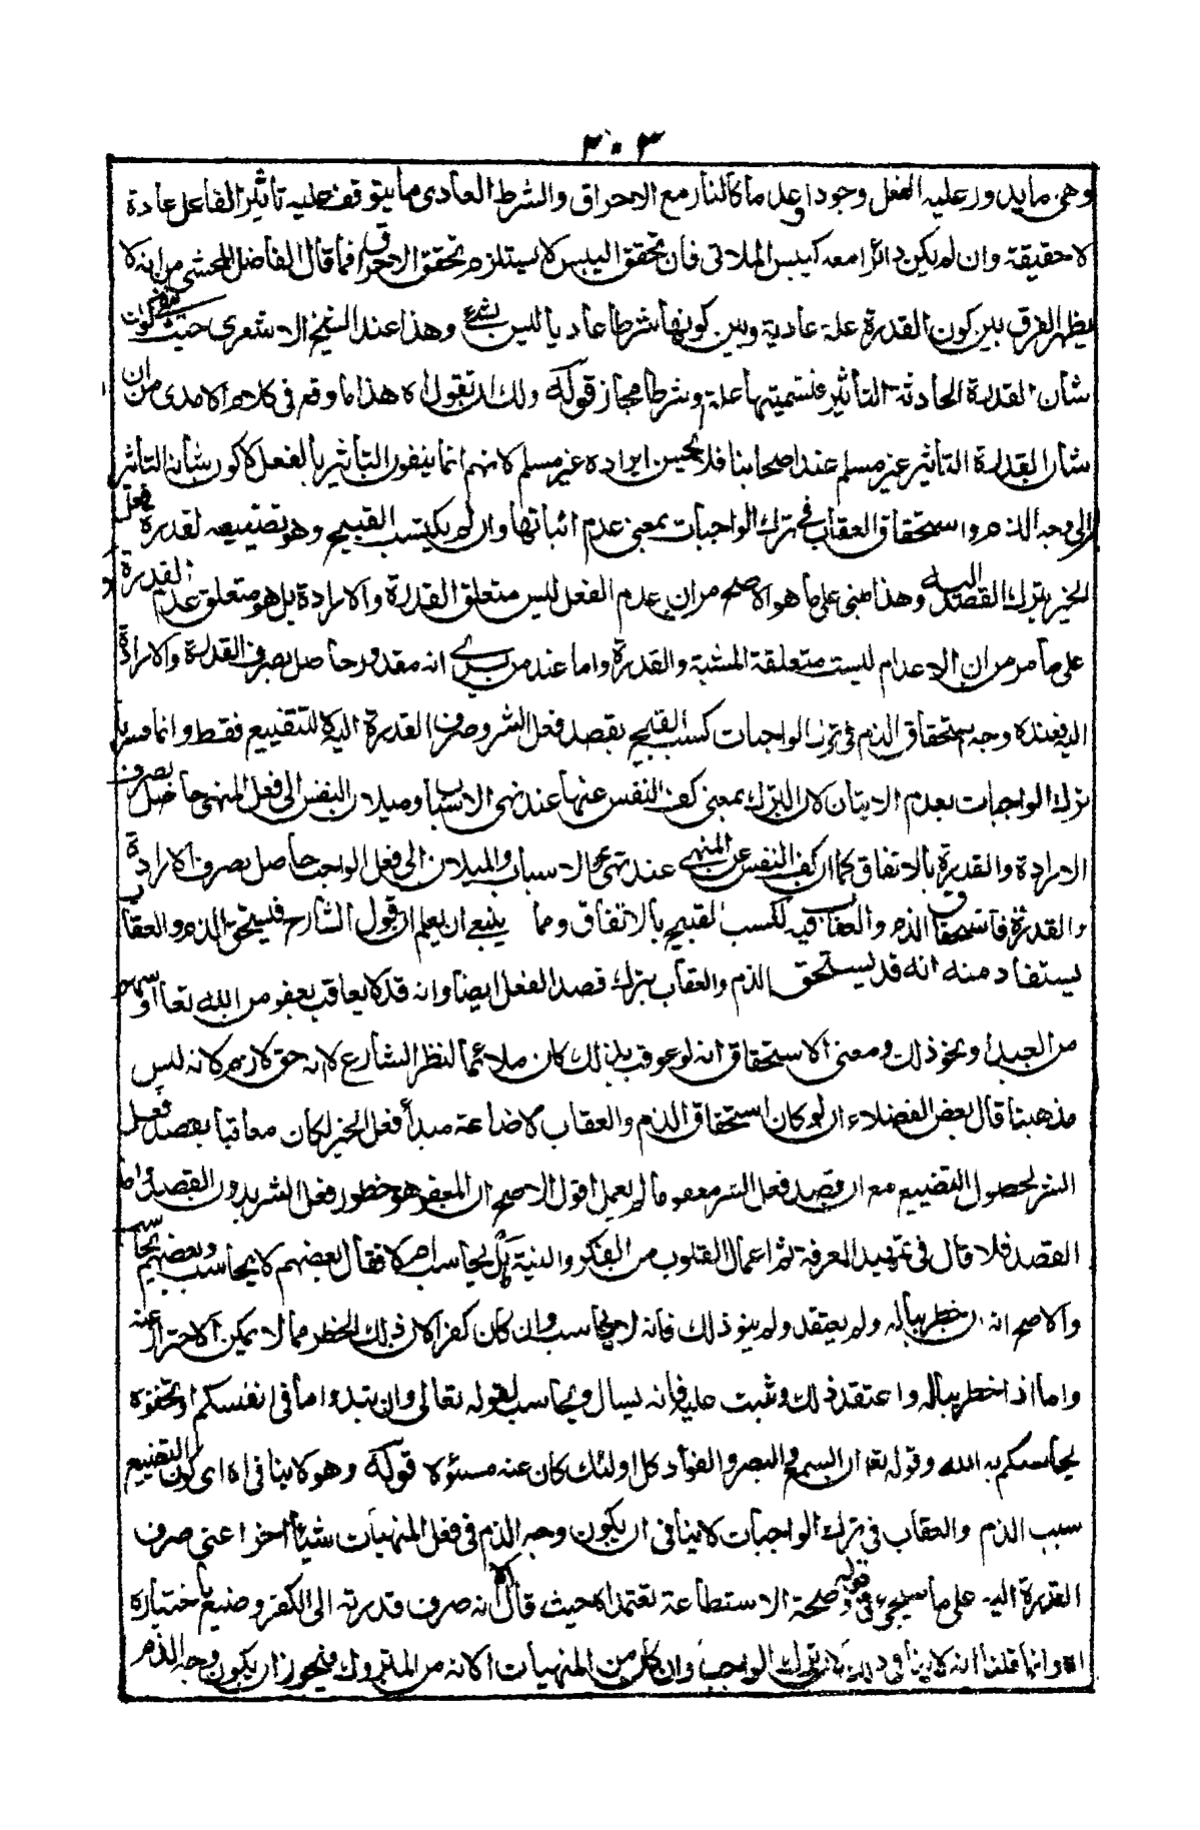 ٣٠٣
وهى ما يدور عليه الفعل وجودا وعدما كالنار مع الاحراق والشرط العادى ما يتوقف عليه تأثير الفاعل عادة
لا حقيقة وان لم يكن دائرا معه كيبس الملاقى فان تحقق اليبس لا يستلزم تحقق الاحراق فما قال الفاضل المحشى من انه لا
يظهر الفرق بين كون القدرة علة عادية وبين كونها شرطا عاديا ليس بشئ وهذا عند الشيخ الاشعرى حيث
شأن القدرة الحادثة التأثير فتسميتها علة وشرطا مجاز قوله ولك ان تقول اه هذا ما وقع فى كلام الامدى من ان
شأن القدرة التأثير غير مسلم عند اصحابنا فلا يحسن ايراده غير مسلم لانهم انما ينفون التأثير بالفعل لا كون شأنه التأثير
وجه الذم واستحقاق العقاب فى ترك الواجبات بمعنى عدم اتيانها وان لم يكتسب القبيح وهو تضييعه لقدرة فعل
الخير بترك القصد اليه وهذا مبنى على ما هو الاصح من ان عدم الفعل ليس متعلق القدرة والارادة بل هو متعلق عدم القدرة
على ما مر من ان الاعدام ليست متعلقة المشية والقدرة واما عند من يرى انه مقدور حاصل بصرف القدرة والارادة
اليه فعنده وجه استحقاق الذم فى ترك الواجبات كسب القبيح بقصد فعل الشر وصرف القدرة اليه لا لتضييع فقط وانما فسرنا
ترك الواجبات بعدم الاتيان لان الترك بمعنى كف النفس عنها عند تهئ الاسباب وميلان النفس الى فعل المنهى حاصل بصرف
الارادة والقدرة بالاتفاق كما ان كف النفس عن المنهى عند تهئ الاسباب والميلان الى فعل الواجب حاصل بصرف الارادة
والقدرة فاستحقاق الذم والعقاب فيه لكسب القبيح بالاتفاق ومما ينبغى ان يعلم ان قول الشارح فيستحق الذم والعقاب
يستفاد منه انه قد يستحق الذم والعقاب بترك قصد الفعل ايضا وانه قد لا يعاقب بعفو من الله تعا او سماح
من العبد او نحو ذلك ومعنى الاستحقاق انه لو عوقب بذلك كان ملائما لنظر الشارع لانه حق لازم لانه ليس
مذهبنا قال بعض الفضلاء ان لو كان استحقاق الذم والعقاب لاضاعة مبدأ فعل الخير لكان معاقبا بقصد فعل
الشر لحصول التضييع مع ان قصد فعل الشر معفو ما لم يعمل اقول الاصح ان المعفو هو خطور فعل الشر بدون القصد واما
القصد فلا قال فى تمهيد المعرفة ثم اعمال القلوب من الفكر والنية هل يحاسب ام لا فقال بعضهم لا يحاسب وبعضهم يحاسب
والاصح انه ان خطر بباله ولم يعتقد ولم ينو ذلك فانه لا يحاسب وان كان كفرا لان ذلك الخطر مما لا يمكن الاحتراز عنه
واما اذا خطر بباله واعتقد ذلك وثبت عليه فانه يسال ويحاسب لقوله تعالى وان تبدوا ما فى انفسكم او تخفوه
يحاسبكم به الله وقوله تعا ان السمع والبصر والفؤاد كل اولئك كان عنه مسئولا قوله وهو لا ينافى اه اى كون التضييع
سبب الذم والعقاب فى ترك الواجبات لا ينافى ان يكون وجه الذم فى فعل المنهيات شيئا اخر اعنى صرف
القدرة اليه على ما سيجئ فى قوله وصحة الاستطاعة تعتمد اه حيث قال الا انه صرف قدرته الى الكفر وضيع باختياره
اه وانما قلنا انه لا ينافى ترك الواجب وان كان من المنهيات الا انه من المتروك فيجوز ان يكون وجه الذم